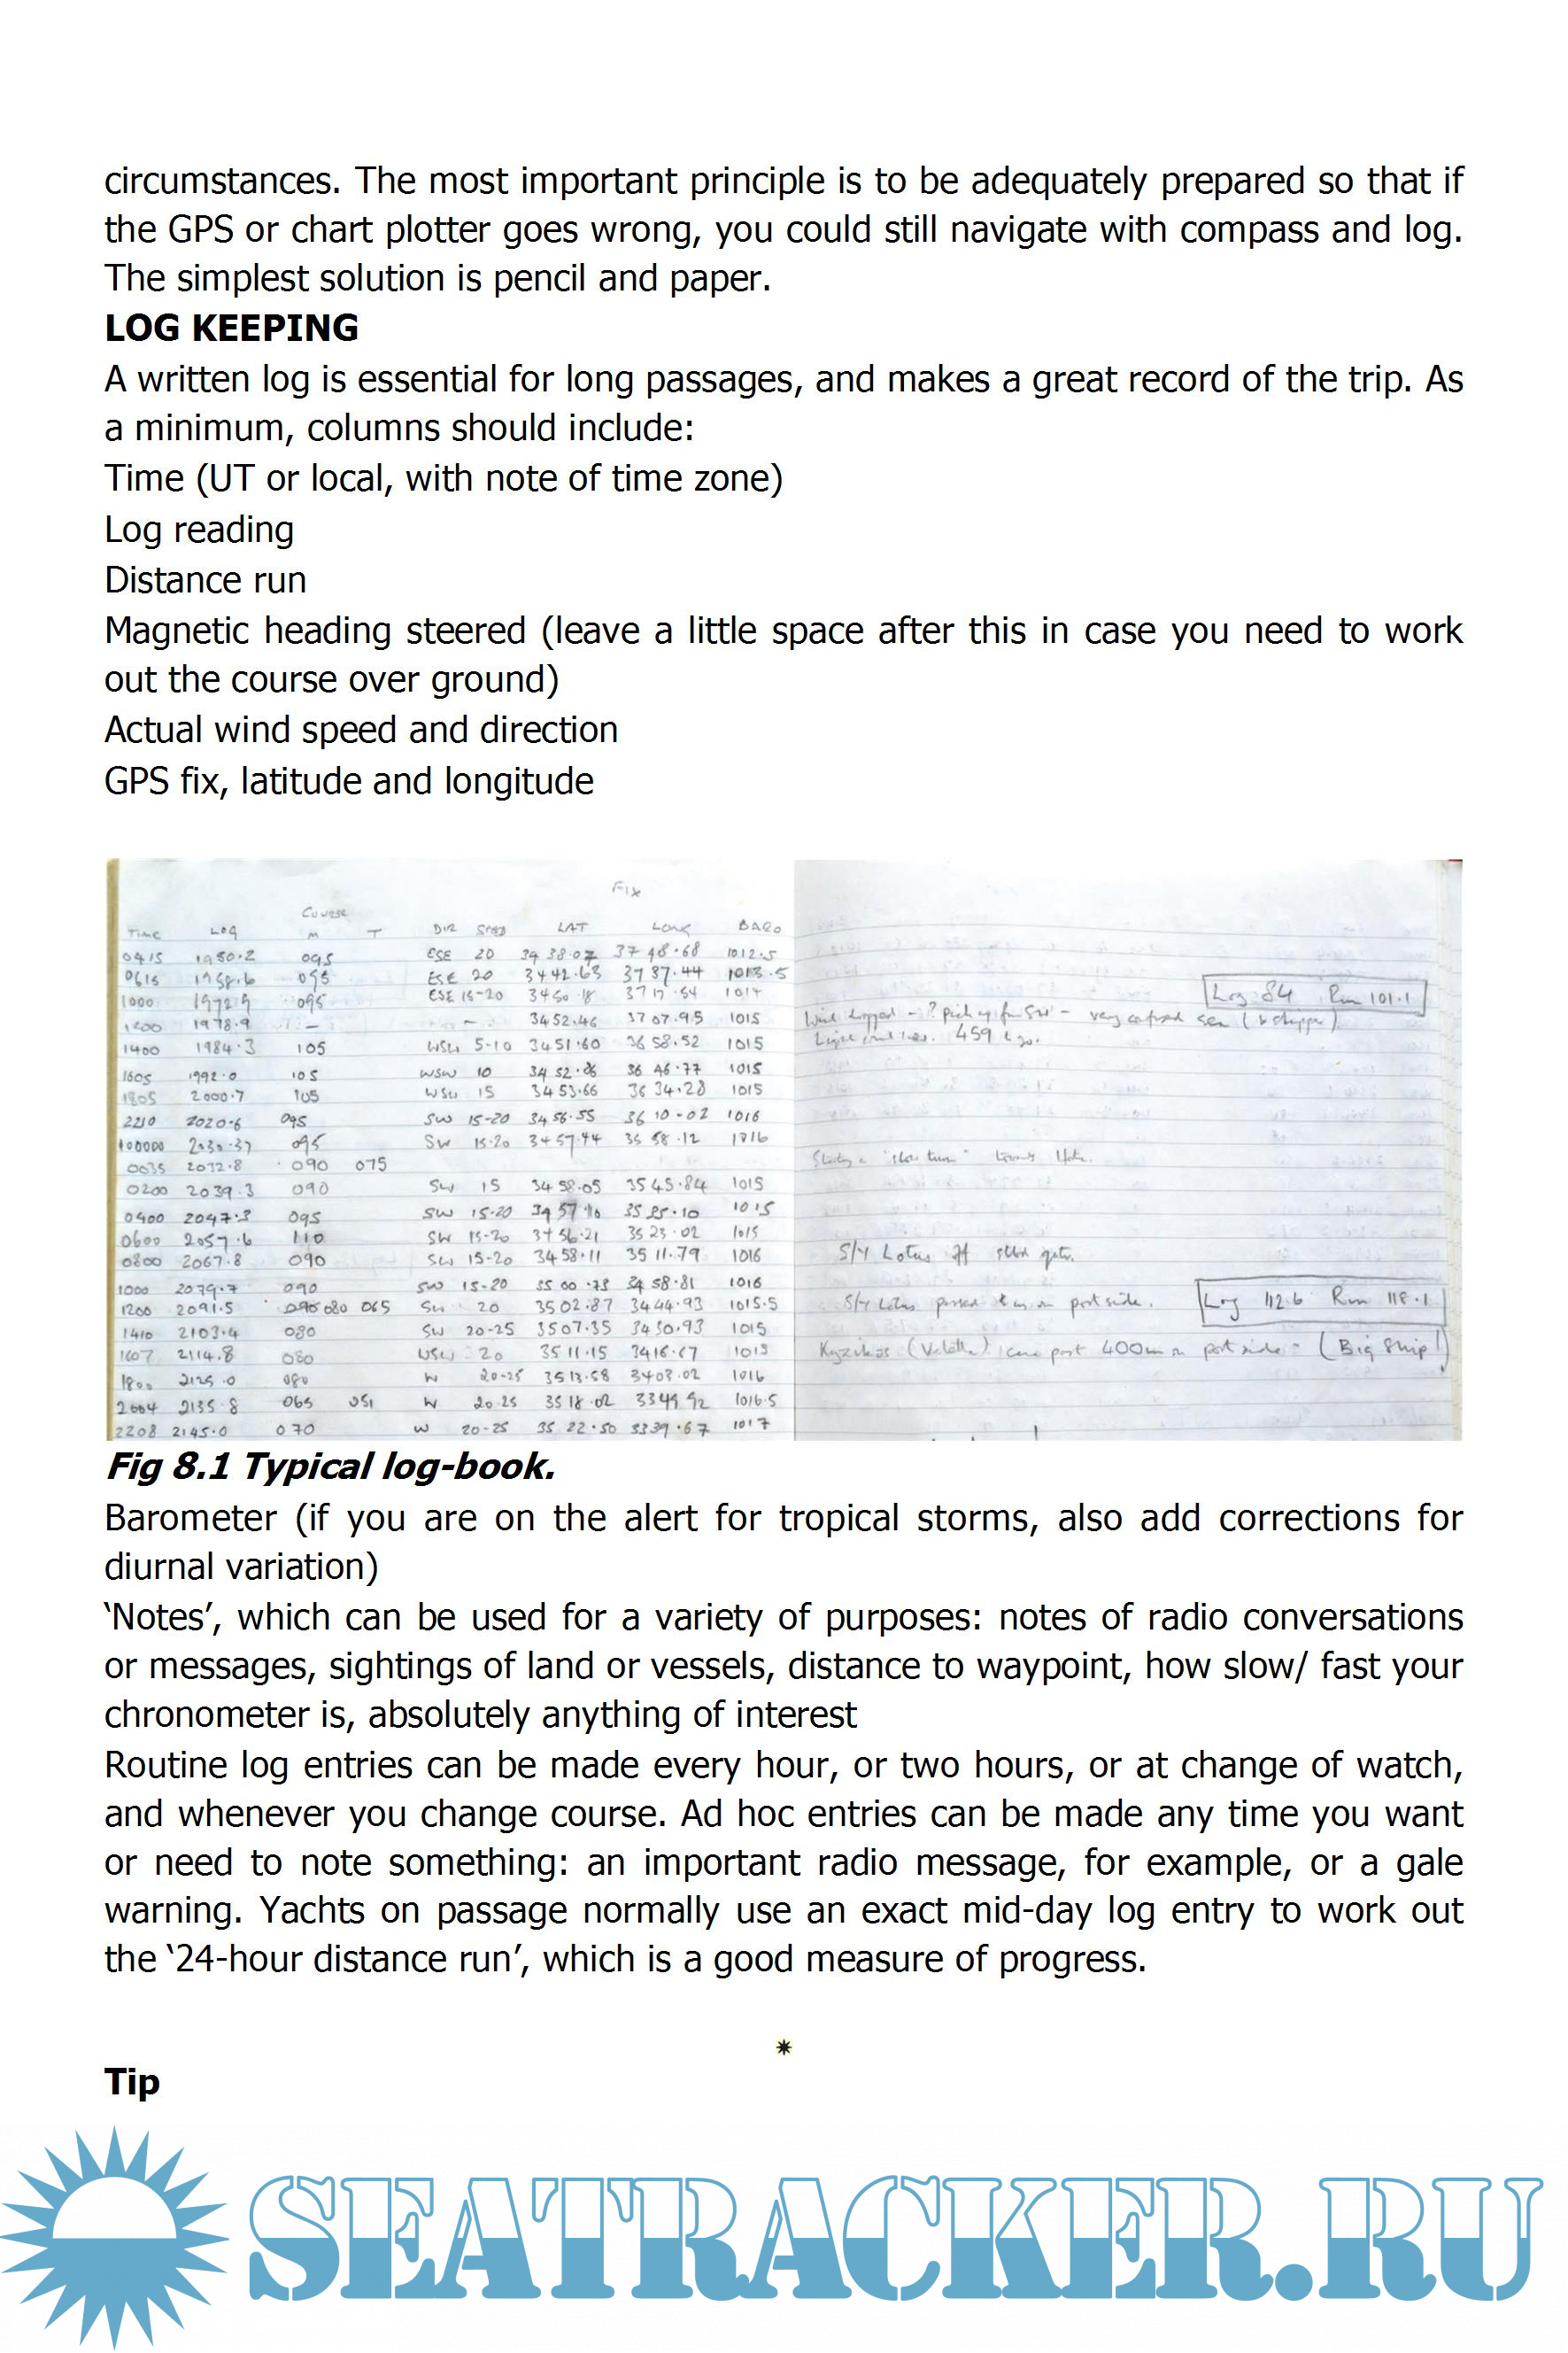 circumstances. The most important principle is to be adequately prepared so that if
the GPS or chart plotter goes wrong, you could still navigate with compass and log.
The simplest solution is pencil and paper.
LOG KEEPING
A written log is essential for long passages, and makes a great record of the trip. As
a minimum, columns should include:
Time (UT or local, with note of time zone)
Log reading
Distance run
Magnetic heading steered (leave a little space after this in case you need to work
out the course over ground)
Actual wind speed and direction
GPS fix, latitude and longitude
FIX
Course
TIME LOG M T DIR SPEED LAT LONG BARO
0415 1950.2 095 ESE 20 34 38.07 37 48.68 1012.5
0615 1958.6 095 ESE 20 3442.63 3737.44 1013.5
1000 1972.9 095 ESE 15-20 3450.18 3717.54 1014
Log 84 Run 101.1
1200 1978.9 – – 3452.46 3707.95 1015 Wind dropped – ? pick up from SW – very confused sea
1400 1984.3 105 WSW 5-10 3451.60 3658.52 1015 459
1605 1992.0 105 WSW 10 34 52.86 36 46.77 1015
1805 2000.7 105 WSW 15 3453.66 36 34.28 1015
2210 2020.6 095 SW 15-20 3456.55 36 10.02 1016
2030.37 095 SW 15-20 3457.44 35 58.12 1016
0035 2032.8 090 075
0200 2039.3 090 SW 15 34 58.05 3545.84 1015
0400 2047.3 095 SW 15-20 3457.10 35 35.10 1015
0600 2057.6 110 SW 15-20 3456.21 35 23.02 1015
0800 2067.8 090 SW 15-20 3458.11 35 11.79 1016 S/Y Lotus off
1000 2079.7 090 SW 15-20 35 00.73 34 58.81 1016
1200 2091.5 090 080 065 SW 20 3502.87 3444.93 1015.5 S/Y Lotus passed on port side. Log 112.6 Run 118.1
1410 2103.4 080 SW 20-25 3507.35 3430.93 1015
1607 2114.8 080 WSW 20 35 11.15 3416.67 1015 (Valletta) port 400m on port side – (Big Ship!)
1800 2125.0 080 W 20-25 3513.58 3403.02 1016
2004 2135.8 065 051 W 20-25 35 18.02 3349.92 1016.5
2208 2145.0 070 W 20-25 35 22.50 3339.67 1017
Fig 8.1 Typical log-book.
Barometer (if you are on the alert for tropical storms, also add corrections for
diurnal variation)
‘Notes’, which can be used for a variety of purposes: notes of radio conversations
or messages, sightings of land or vessels, distance to waypoint, how slow/ fast your
chronometer is, absolutely anything of interest
Routine log entries can be made every hour, or two hours, or at change of watch,
and whenever you change course. Ad hoc entries can be made any time you want
or need to note something: an important radio message, for example, or a gale
warning. Yachts on passage normally use an exact mid-day log entry to work out
the ‘24-hour distance run’, which is a good measure of progress.
Tip
SEATRACKER.RU